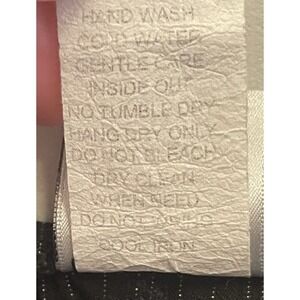 HAND WASH
COLD WATER
GENTLE CARE
INSIDE OUT
NO TUMBLE DRY
HANG DRY ONLY
DO NOT BLEACH
DRY CLEAN
WHEN NEED
DO NOT WRING
COOL IRON